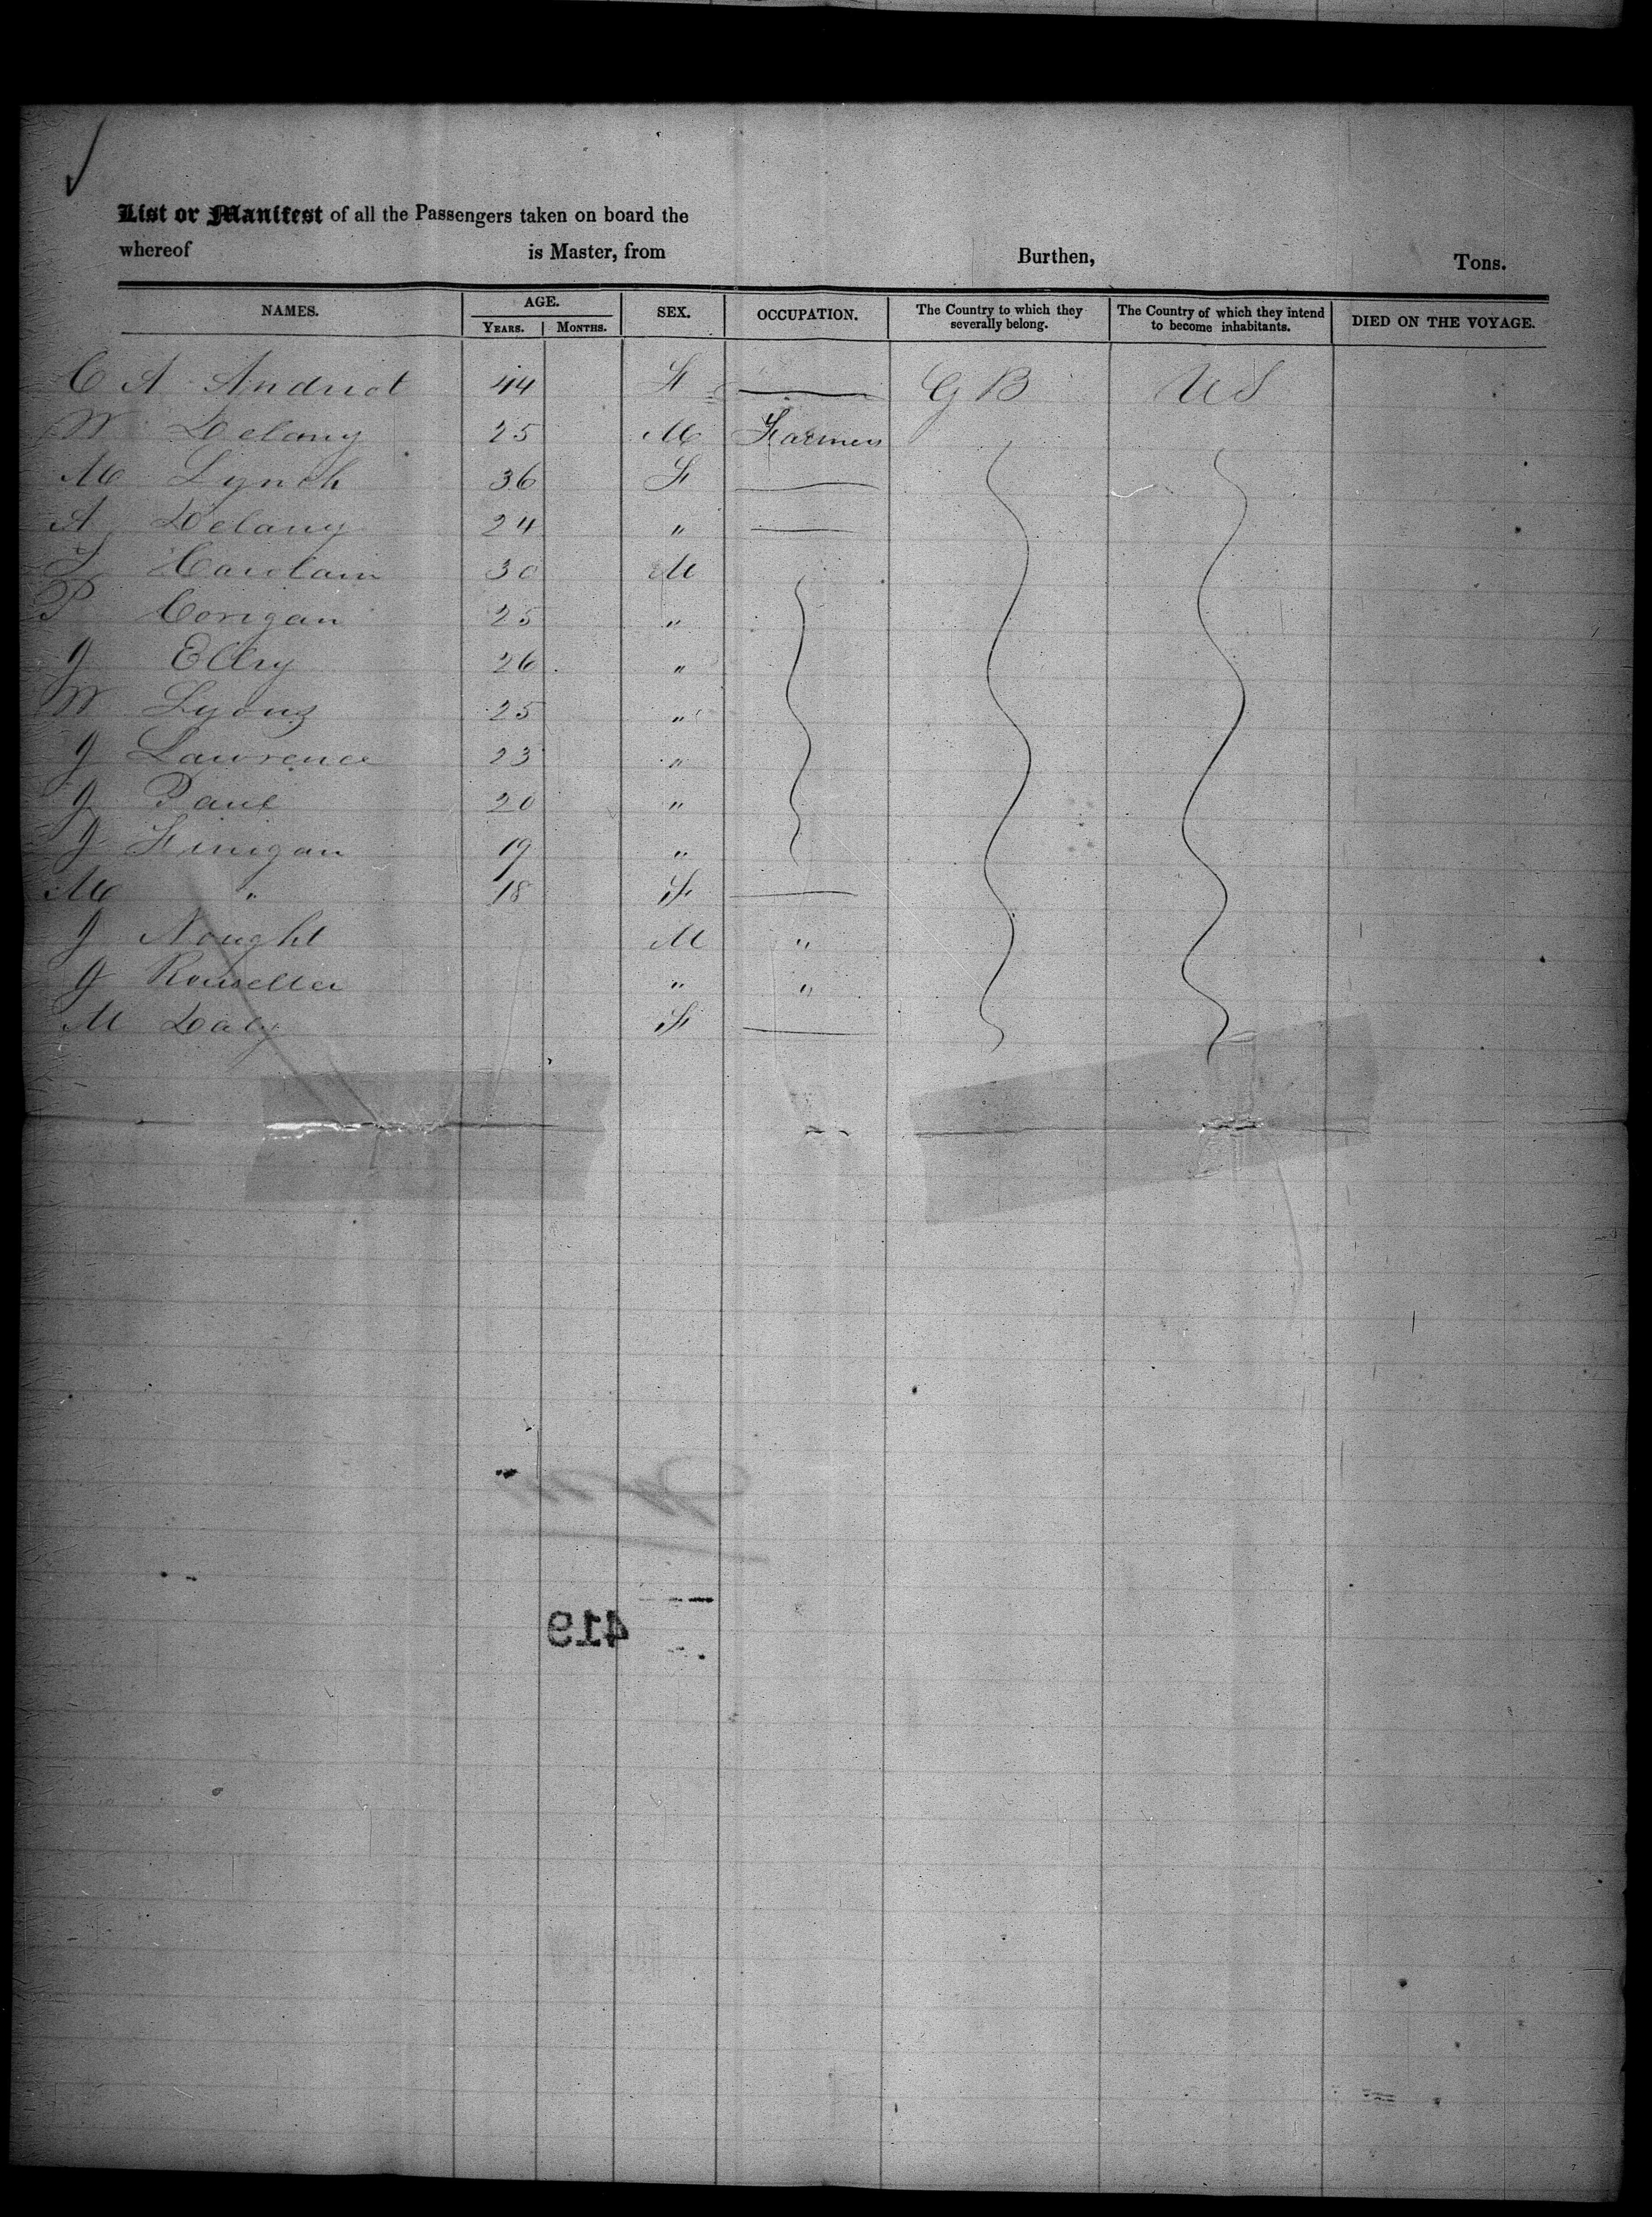 List or Manifest of all the Passengers taken on board the
whereof is Master, from Burthen, Tons.
NAMES. AGE. SEX. OCCUPATION. The Country to which they severally belong. The Country of which they intend to become inhabitants. DIED ON THE VOYAGE.
YEARS. MONTHS.
C A Andriot 44 F G B U S
W Delany 25 M Farmers
M Lynch 36 F
A Delany 24 "
30 M
P Corigan 25 "
J 26 "
W Lyons 25 "
J Lawrence 23 "
J Paul 20 "
J Finigan 19 "
M " 18 F
J Nought M "
J " "
M Daly F
419